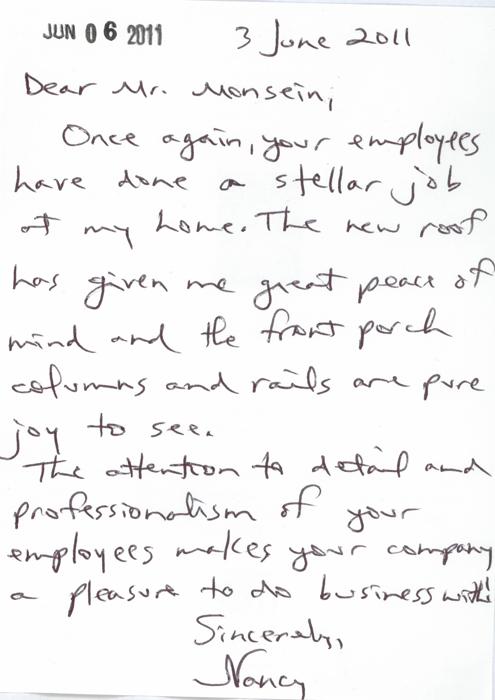 JUN 06 2011
3 June 2011
Dear Mr. Monsein;
Once again, your employees
have done a stellar job
at my home. The new roof
has given me great peace of
mind and the front porch
columns and rails are pure
joy to see.
The attention to detail and
professionalism of your
employees makes your company
a pleasure to do business with!
Sincerely,
Nancy